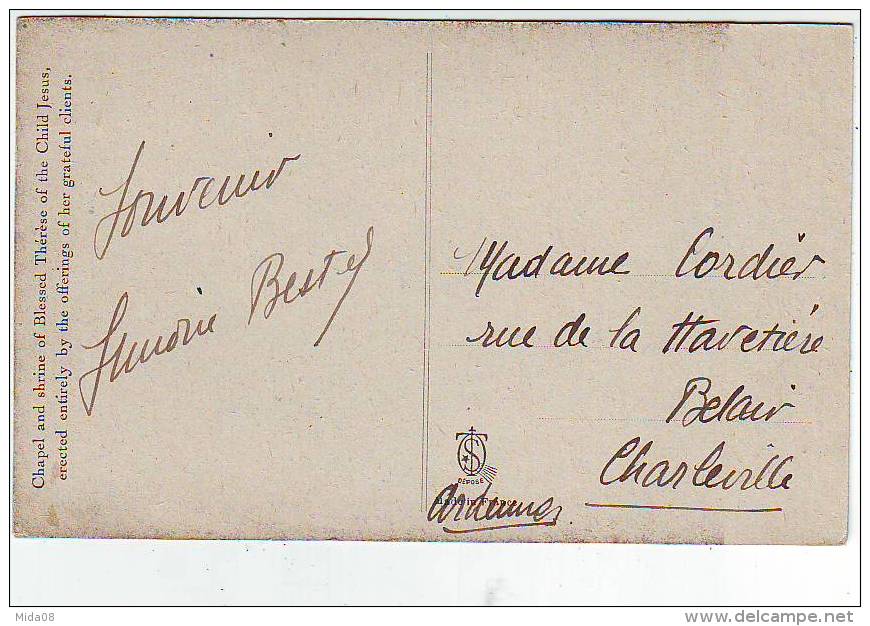 Chapel and shrine of Blessed Thérèse of the Child Jesus,
erected entirely by the offerings of her grateful clients.
Souvenir
Simone
Madame Cordier
rue de la Havetière
Belair
Charleville
Ardennes
DÉPOSÉ
Made in France
Mida08
www.delcampe.net